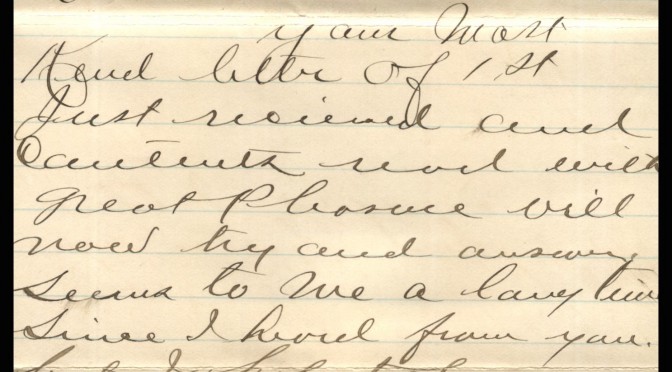 your Most
Kind letter of 1st
Just recieved and
Contents read with
great Pleasure will
now try and answer
seems to me a long time
since I heard from you.